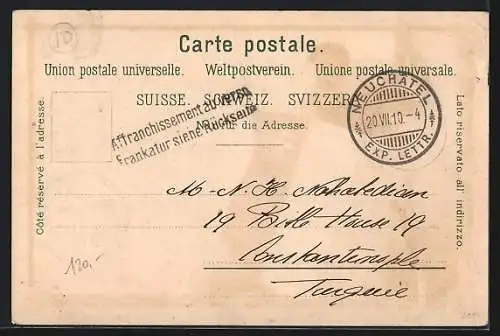 10
Carte postale.
Union postale universelle. Weltpostverein. Unione postale universale.
SUISSE. SCHWEIZ. SVIZZERA.
Nur für die Adresse.
Affranchissement au verso
Frankatur siehe Rückseite
NEUCHATEL
20.VII.10.-4
EXP. LETTR.
Côté réservé à l'adresse.
Lato riservato all' indirizzo.
M- N. H. Nahabedian
19 Bible House 19
Constantinople
Turquie
120.-